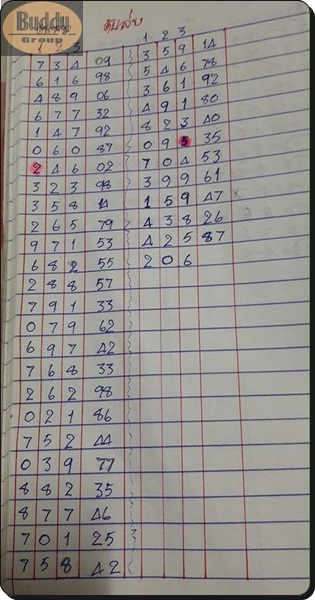 Buddy
Group
1 2 3
7 3 4 09
6 1 6 98
4 8 9 06
6 7 7 32
1 4 7 92
0 6 0 87
2 4 6 02
3 2 3 98
3 5 8 14
2 6 5 79
9 7 1 53
6 8 2 55
2 8 8 57
7 9 1 33
0 7 9 62
6 9 7 42
7 6 8 33
2 6 2 98
0 2 1 86
7 5 2 44
0 3 9 77
8 8 2 35
8 7 7 46
7 0 1 25
7 5 8 42
3 5 9 14
5 4 6 78
3 6 1 92
4 9 1 80
8 2 3 40
0 9 5 35
7 0 4 53
3 9 9 61
1 5 9 47
4 3 8 26
4 2 5 87
2 0 6